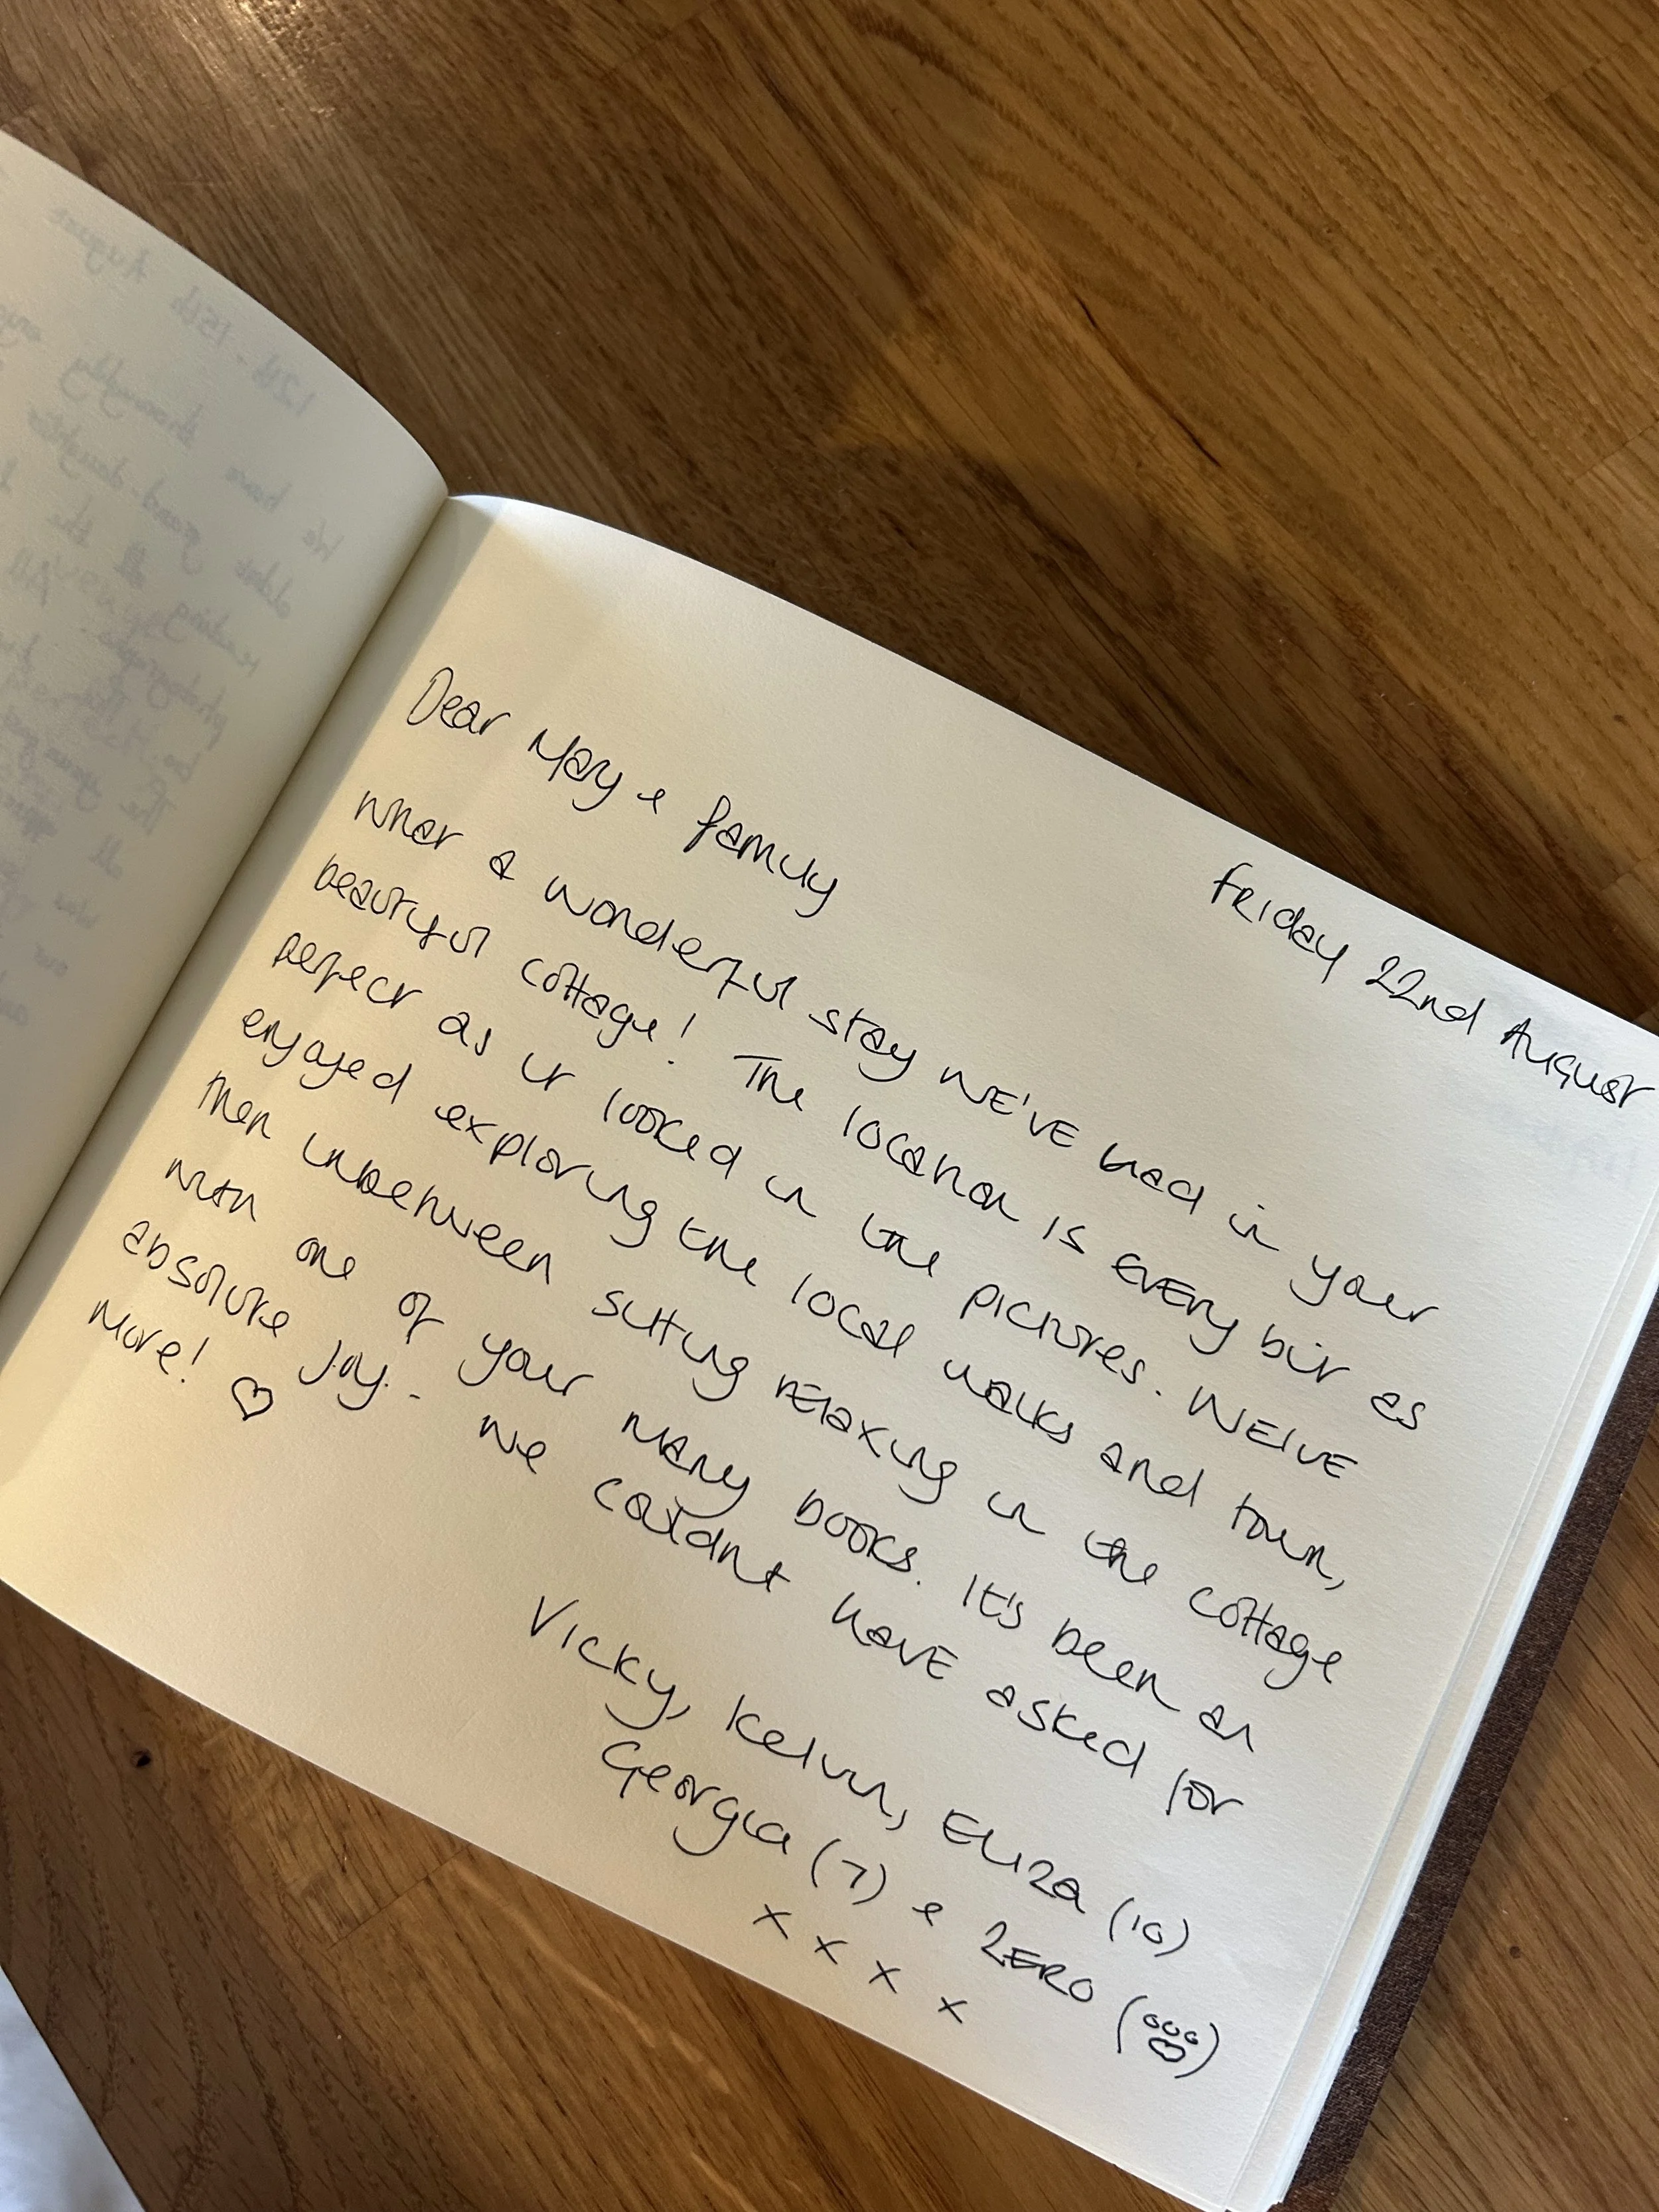 Friday 22nd August
Dear May & family
What a wonderful stay we've had in your
beautiful cottage! The location is every bit as
perfect as it looked in the pictures. We've
enjoyed exploring the local walks and town,
then inbetween sitting relaxing in the cottage
with one of your many books. It's been an
absolute joy. - We couldn't have asked for
more! ♡
Vicky, Kelvin, Eliza (10)
Georgia (7) & Zero (🐾)
x x x x
12th - 15th August
We have thoroughly